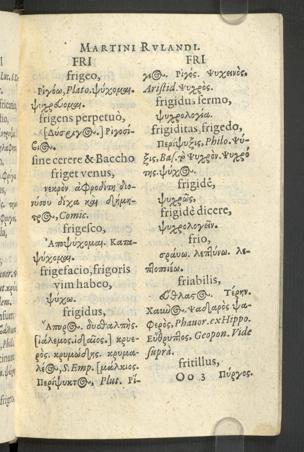 MARTINI RVLANDI.
FRI
frigeo,
Ριγόω, Plato. ψύχομαι.
ψυχρόομαι.
frigens perpetuò,
Ριγοσί-
βιος.
sine cerere & Baccho
friget venus,
νεκρὸν ἀφροδίτη διο-
νύσου δίχα καὶ δήμη-
τρος, Comic.
frigesco,
Αποψύχομαι. Κατα-
ψύχομαι.
frigefacio, frigoris
vim habeo,
ψύχω.
frigidus,
Απυρος. δυσθαλπής.
κρυε-
ρός. κρυμώδης. κρυμα-
λέος, S. Emp. [μάλκιος.
Περίψυκτος, Plut. Ρί-
FRI
γιος. Ριγός. Ψυχεινός.
Aristid. Ψυχρός.
frigidus sermo,
ψυχρολογία.
frigiditas, frigedo,
Περίψυξις, Philo. Ψύ-
ξις, Bas. τὸ ψυχρόν. Ψυχρό
της. ψύχος.
frigidè,
ψυχρῶς.
frigidè dicere,
ψυχρολογεῖν.
frio,
θραύω. λεπτύνω. λε-
πτοποιέω.
friabilis,
Τέρην.
Χαῦνος. Ψαθαρὸς ψα-
φερός, Phavor. ex Hippo.
Εὔθρυπτος, Geopon. Vide
suprà.
fritillus,
Oo 3 Πύργος.